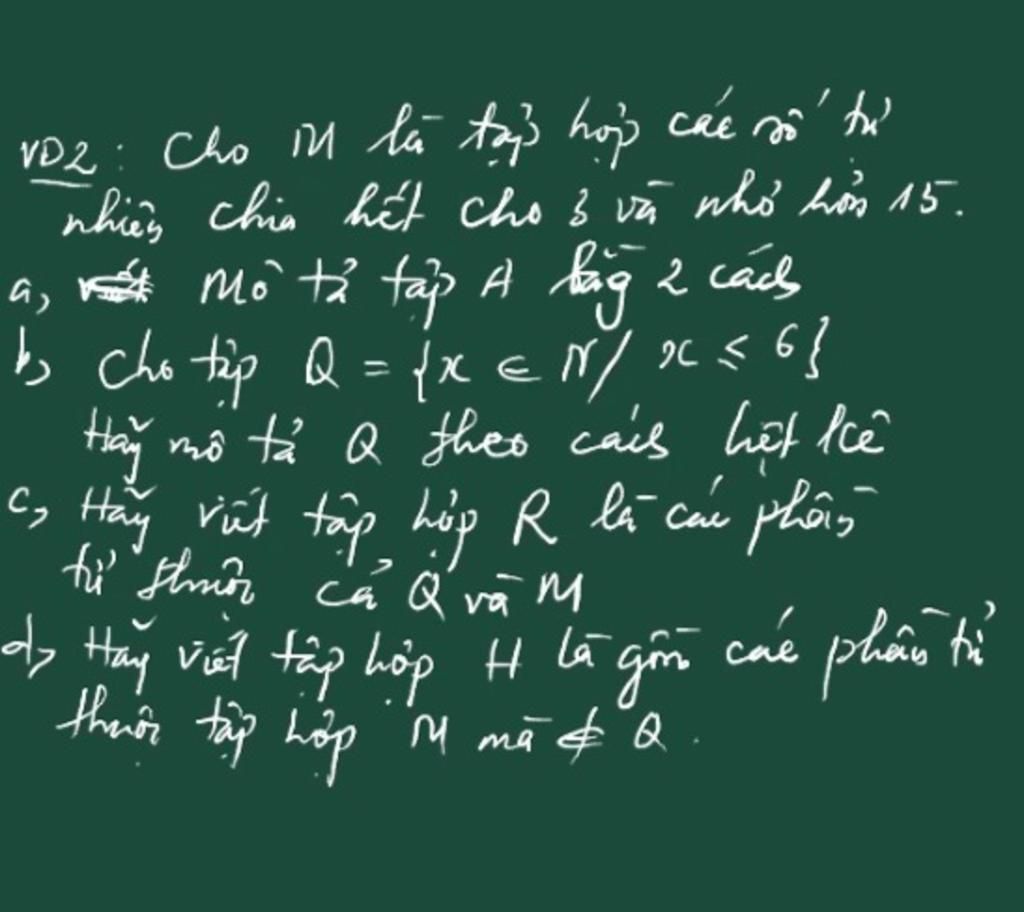 VD2: Cho M là tập hợp các số tự
nhiên chia hết cho 3 và nhỏ hơn 15.
a, Mô tả tập A bằg 2 cách
b, Cho tập Q = {x ∈ N / x ≤ 6}
Hãy mô tả Q theo cách liệt kê
c, Hãy viết tập hợp R là các phần
tử thuộc cả Q và M
d, Hãy viết tập hợp H là gồm các phần tử
thuộc tập hợp M mà ∉ Q.